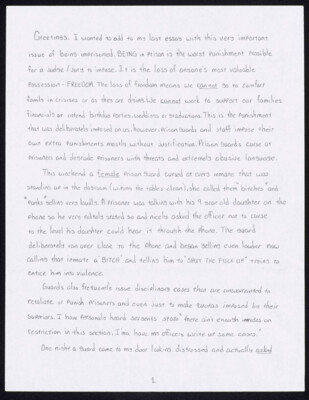 Greetings. I wanted to add to my last essay with this very important
issue of being imprisoned. BEING in Prison is the worst Punishment Possible
for a Judge/Jury to impose. It is the loss of someone's most valuable
Possession - FREEDOM. The loss of freedom means we cannot go to comfort
family in crisises or as they are dying. We cannot work to support our families
financially or attend birthday parties, weddings or graduations. This is the Punishment
that was deliberately imposed on us; however, Prison guards and staff impose their
own extra Punishments mostly without justification. Prison guards curse at
Prisoners and degrade Prisoners with threats and extremely abusive language.
This weekend a female Prison guard cursed at every inmate that was
standing up in the dayroom (wiping the tables clean). She called them "bitches" and
"fucks" yelling very loudly. A Prisoner was talking with his 9 year old daughter on the
phone so he very politely asked and nicely asked the officer not to curse
so loud his daughter could hear it through the phone. The guard
deliberately ran over close to the phone and began yelling even louder now
calling that inmate a "BITCH" and telling him to "SHUT THE FUCK UP" trying to
entice him into violence.
Guards also frequently issue disciplinary cases that are unwarranted to
retaliate or punish Prisoners and even just to make quotas imposed by their
superiors. I have Personally heard sergeants state "there ain't enough inmates on
restriction in this section. I'ma have my officers write up some cases."
One night a guard came to my door looking distressed and actually asked
1